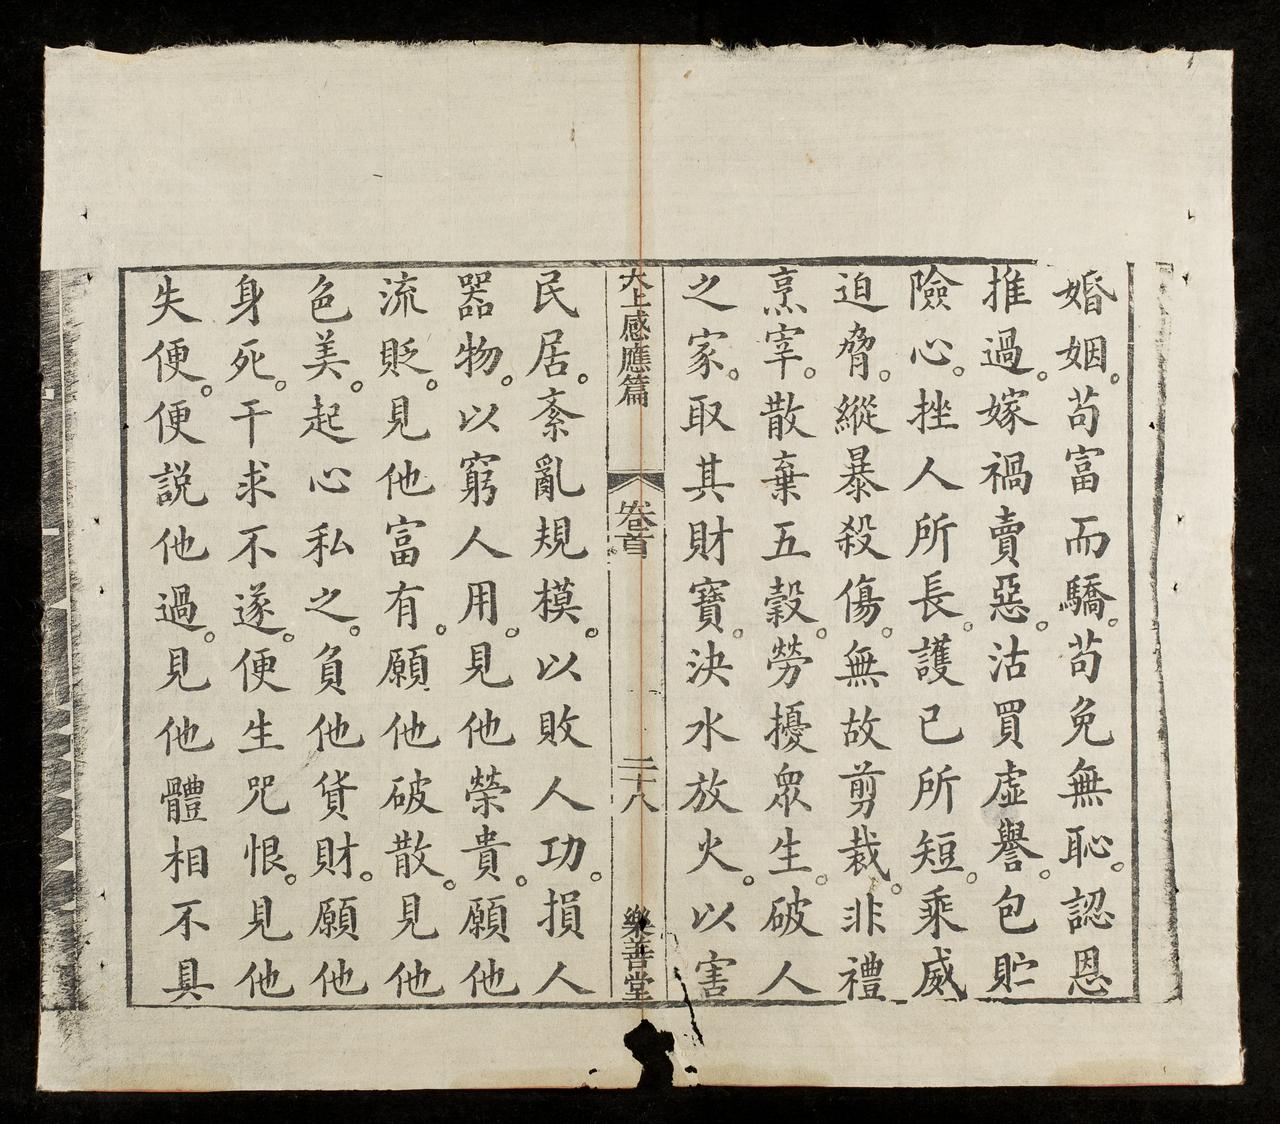 婚姻。苟富而驕。苟免無恥。認恩
推過。嫁禍賣惡。沽買虛譽。包貯
險心。挫人所長。護已所短。乘威
迫脅。縱暴殺傷。無故剪裁。非禮
烹宰。散棄五穀。勞擾眾生。破人
之家。取其財寶。決水放火。以害
太上感應篇
卷首
二十八
樂善堂
民居。紊亂規模。以敗人功。損人
器物。以窮人用。見他榮貴。願他
流貶。見他富有。願他破散。見他
色美。起心私之。負他貨財。願他
身死。干求不遂。便生咒恨。見他
失便。便說他過。見他體相不具